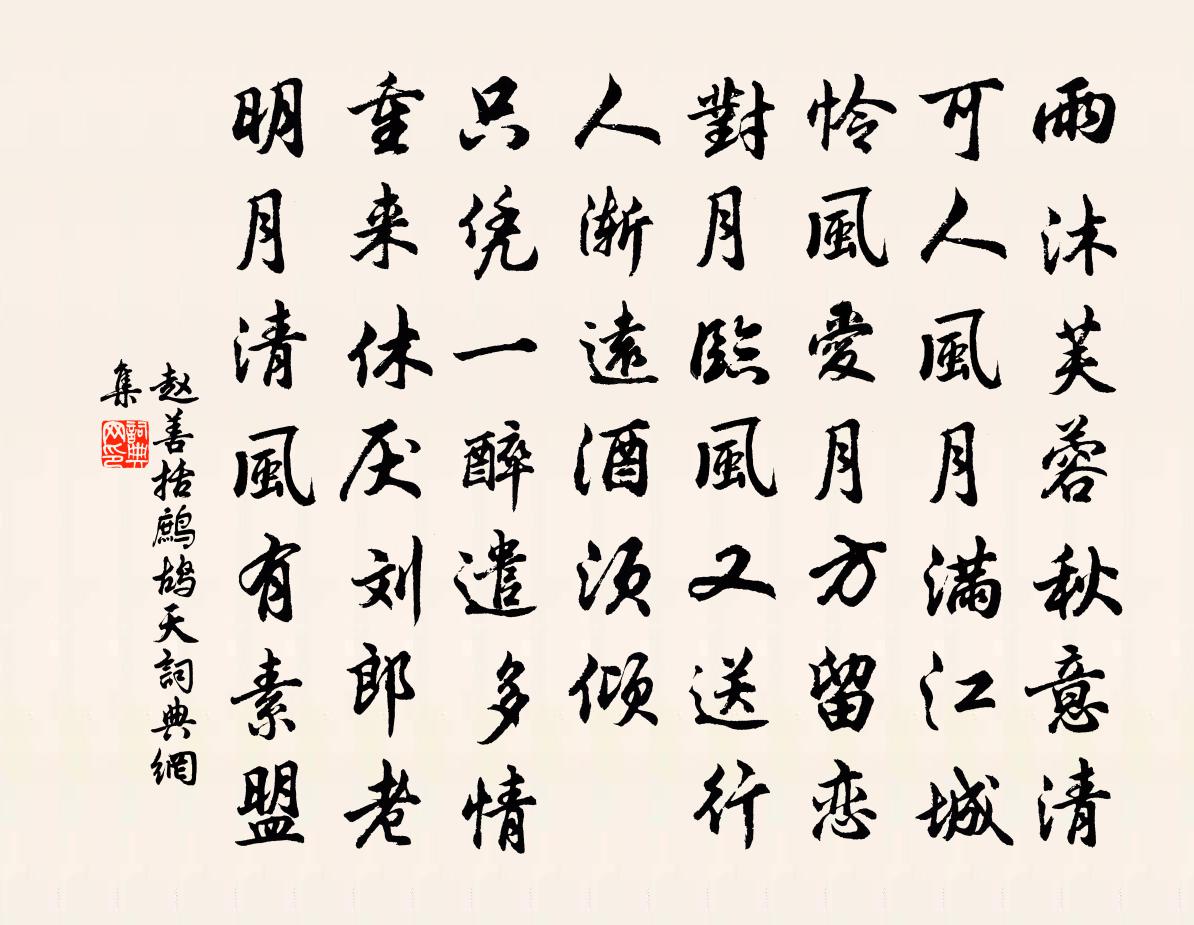 雨沐芙蓉秋意清
可人風月滿江城
怜風愛月方留恋
對月臨風又送行
人渐遠酒须倾
只凭一醉遣多情
重来休厌刘郎老
明月清風有素盟
赵善括鷓鸪天詞典網
集
詞典
网印